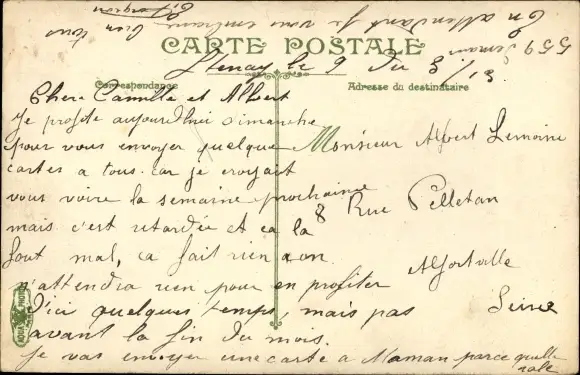 CARTE POSTALE
Correspondance
Adresse du destinataire
Stenay le 9 Du 3/13
Chere Camille et Albert
Je profite aujourd'hui Dimanche
pour vous envoyer quelque
cartes a tous. car je croyait
vous voire la semaine prochaine
mais c'est retardée et ca la
fout mal, ca fait rien on
n'attendra rien pour en profiter
D'ici quelques temps, mais pas
avant la fin du mois.
Je vas envoyer une carte a Maman parce quelle
rale
En attendant je vous embrasse
bien tous
Monsieur Albert Lemoine
8 Rue Pelletan
Alfortville
Seine